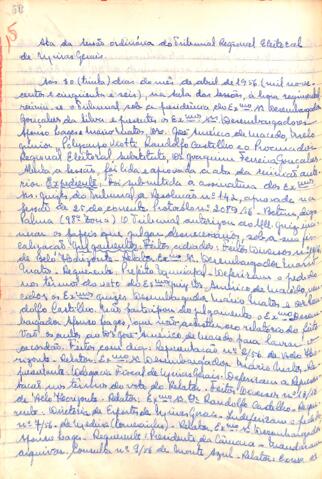 Ata da sessão ordinária do Tribunal Regional Eleitoral
de Minas Gerais.
Aos 30 (trinta) dias do mês de abril de 1956 (mil nove-
centos e cinquenta e seis), na sala das sessões, à hora regimental,
reuniu-se o Tribunal sob a presidência do Exmo. Sr. Desembargador
Gonçalves da Silva e presentes os Exmos. Srs. Desembargadores
Afonso Lages e Mário Matos, Drs. José Américo de Macedo,
Policarpo Viotti, Randolfo Castilho e o Procurador
Regional Eleitoral, substituto, Dr. Joaquim Ferreira Gonçalves.
Aberta a sessão, foi lida e aprovada a ata da sessão ante-
rior. Expediente: Foi submetida à assinatura dos Exmos.
Srs. Juízes do Tribunal a Resolução nº 142, aprovada na
sessão de 25 do corrente. Consulta nº 2079/56
O Tribunal autorizou ao MM. Juiz
os papeis que julgar desnecessários, sob a sua fis-
calização. Julgamentos: Feitos adiados: Feitos Diversos nº
de Belo Horizonte. Relator: Exmo. Sr. Desembargador Mário
Matos. Requerente: Prefeito Municipal. Deferiram o pedido
nos termos do voto do Exmo. Juiz Dr. Américo de Macedo, ven-
cidos os Exmos. Juízes Desembargador Mário Matos e Dr. Ran-
dolfo Castilho. Não participou do julgamento o Exmo. Desem-
bargador Afonso Lages, que não assistiu ao relatório do feito.
Vão os autos ao Dr. José Américo de Macedo para lavrar o
acórdão. Feitos com dia: Representação nº 2/56 de Belo Hori-
zonte. Relator: Exmo. Sr. Desembargador Mário Matos. Re-
presentante: Delegacia Fiscal de Minas Gerais. Deferiram a represen-
tação nos termos do voto do Relator. Feitos Diversos nº
de Belo Horizonte. Relator: Exmo. Sr. Dr. Randolfo Castilho. Reque-
rente: Diretoria de Esportes de Minas Gerais. Indeferiram o pedido.
nº 7/56 de Medina (Comercinho). Relator: Exmo. Sr. Desembargador
Afonso Lages. Requerente: Presidente da Câmara. Mandaram
arquivar. Consulta nº 9/56 de Monte Azul. Relator: Exmo. Sr.